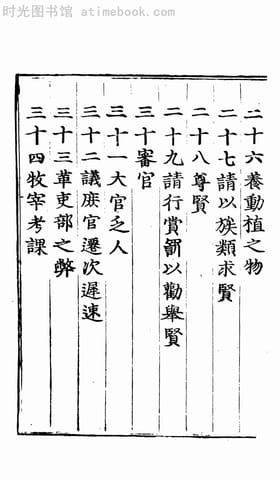 时光图书馆 - atimebook.com
二十六養動植之物
二十七請以族類求賢
二十八尊賢
二十九請行賞罰以勸舉賢
三十審官
三十一大官乏人
三十二議庶官遷次遲速
三十三革吏部之弊
三十四牧宰考課